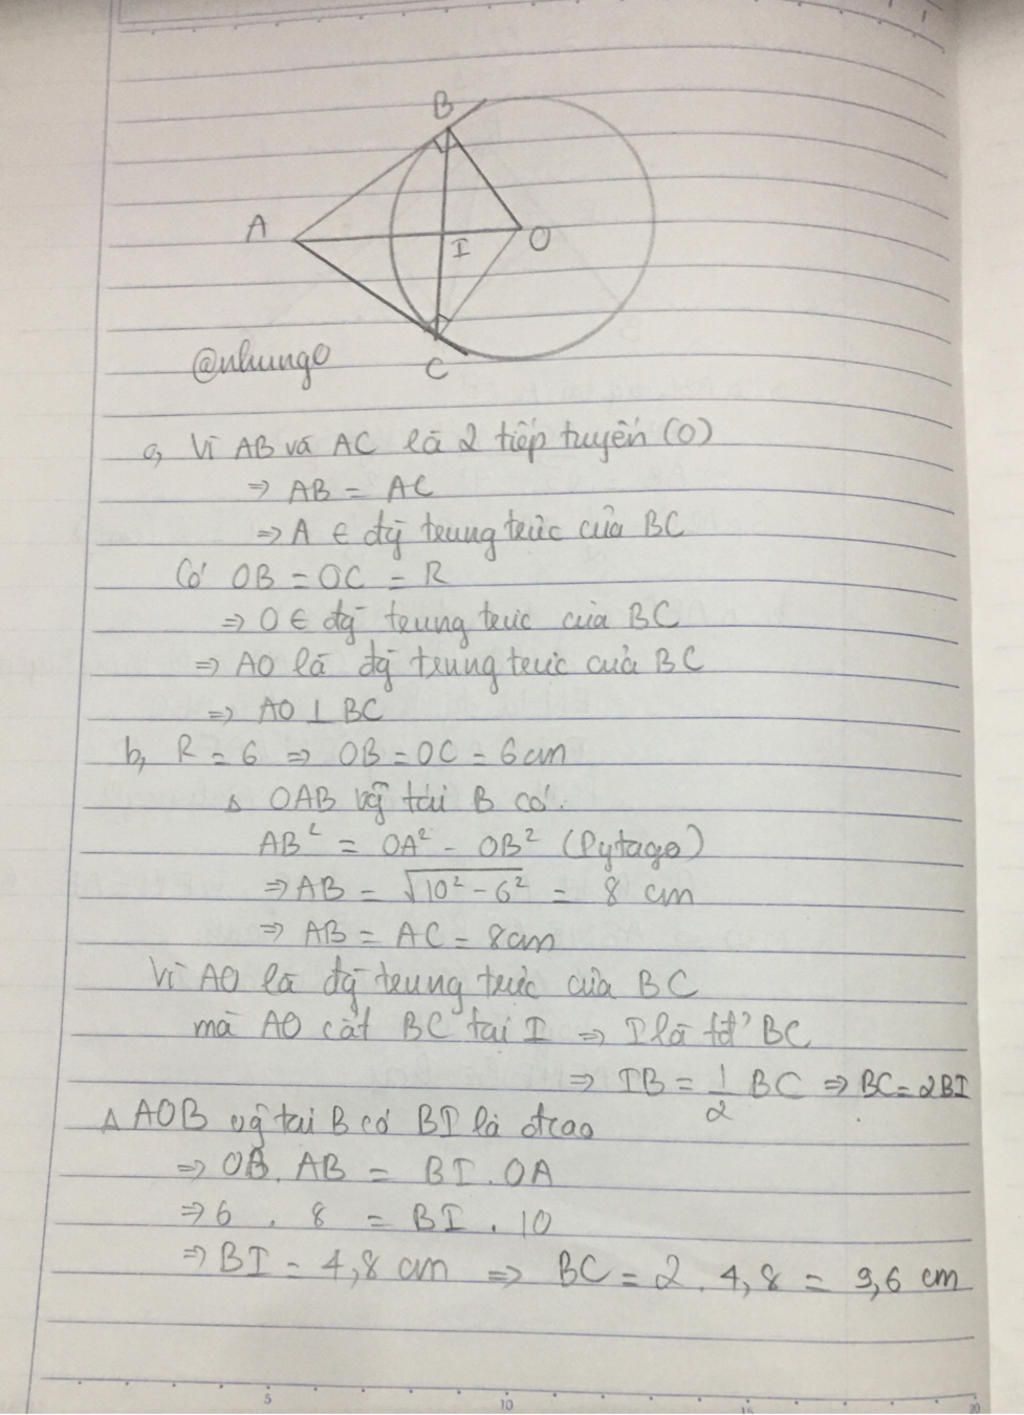 B
A
I
O
C
@nhung0
a, Vì AB và AC là 2 tiếp tuyến (O)
⇒ AB = AC
⇒ A ∈ đg̀ trung trực của BC
Có OB = OC = R
⇒ O ∈ đg̀ trung trực của BC
⇒ AO là đg̀ trung trực của BC
⇒ AO ⊥ BC
b, R = 6 ⇒ OB = OC = 6cm
Δ OAB vg̃ tại B có.
AB² = OA² - OB² (Pytago)
⇒ AB = √10² - 6² = 8 cm
⇒ AB = AC = 8cm
Vì AO là đg̀ trung trực của BC
mà AO cắt BC tại I ⇒ I là tđ' BC
⇒ IB = 1/2 BC ⇒ BC = 2BI
Δ AOB vg̃ tại B có BI là đcao
⇒ OB. AB = BI. OA
⇒ 6 . 8 = BI . 10
⇒ BI = 4,8 cm ⇒ BC = 2. 4,8 = 9,6 cm
5 10 15 20